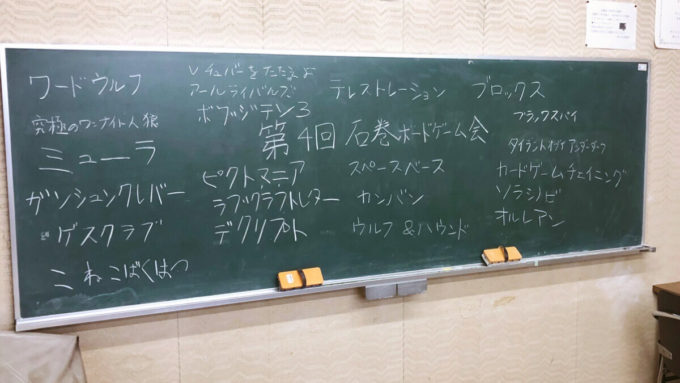 第4回 石巻ボードゲーム会
ワードウルフ
究極のワンナイト人狼
ミューラ
ガンシュンクレバー
ゲスクラブ
こねこばくはつ
Vチューバーをたたえよ
アールライバルズ
ボブジテン3
ピクトマニア
ラブクラフトレター
デクリプト
テレストレーション
スペースベース
カンバン
ウルフ&ハウンド
ブロックス
ブラックスパイ
アンダーダーク
カードゲームチェイニング
ソラシノビ
オルレアン